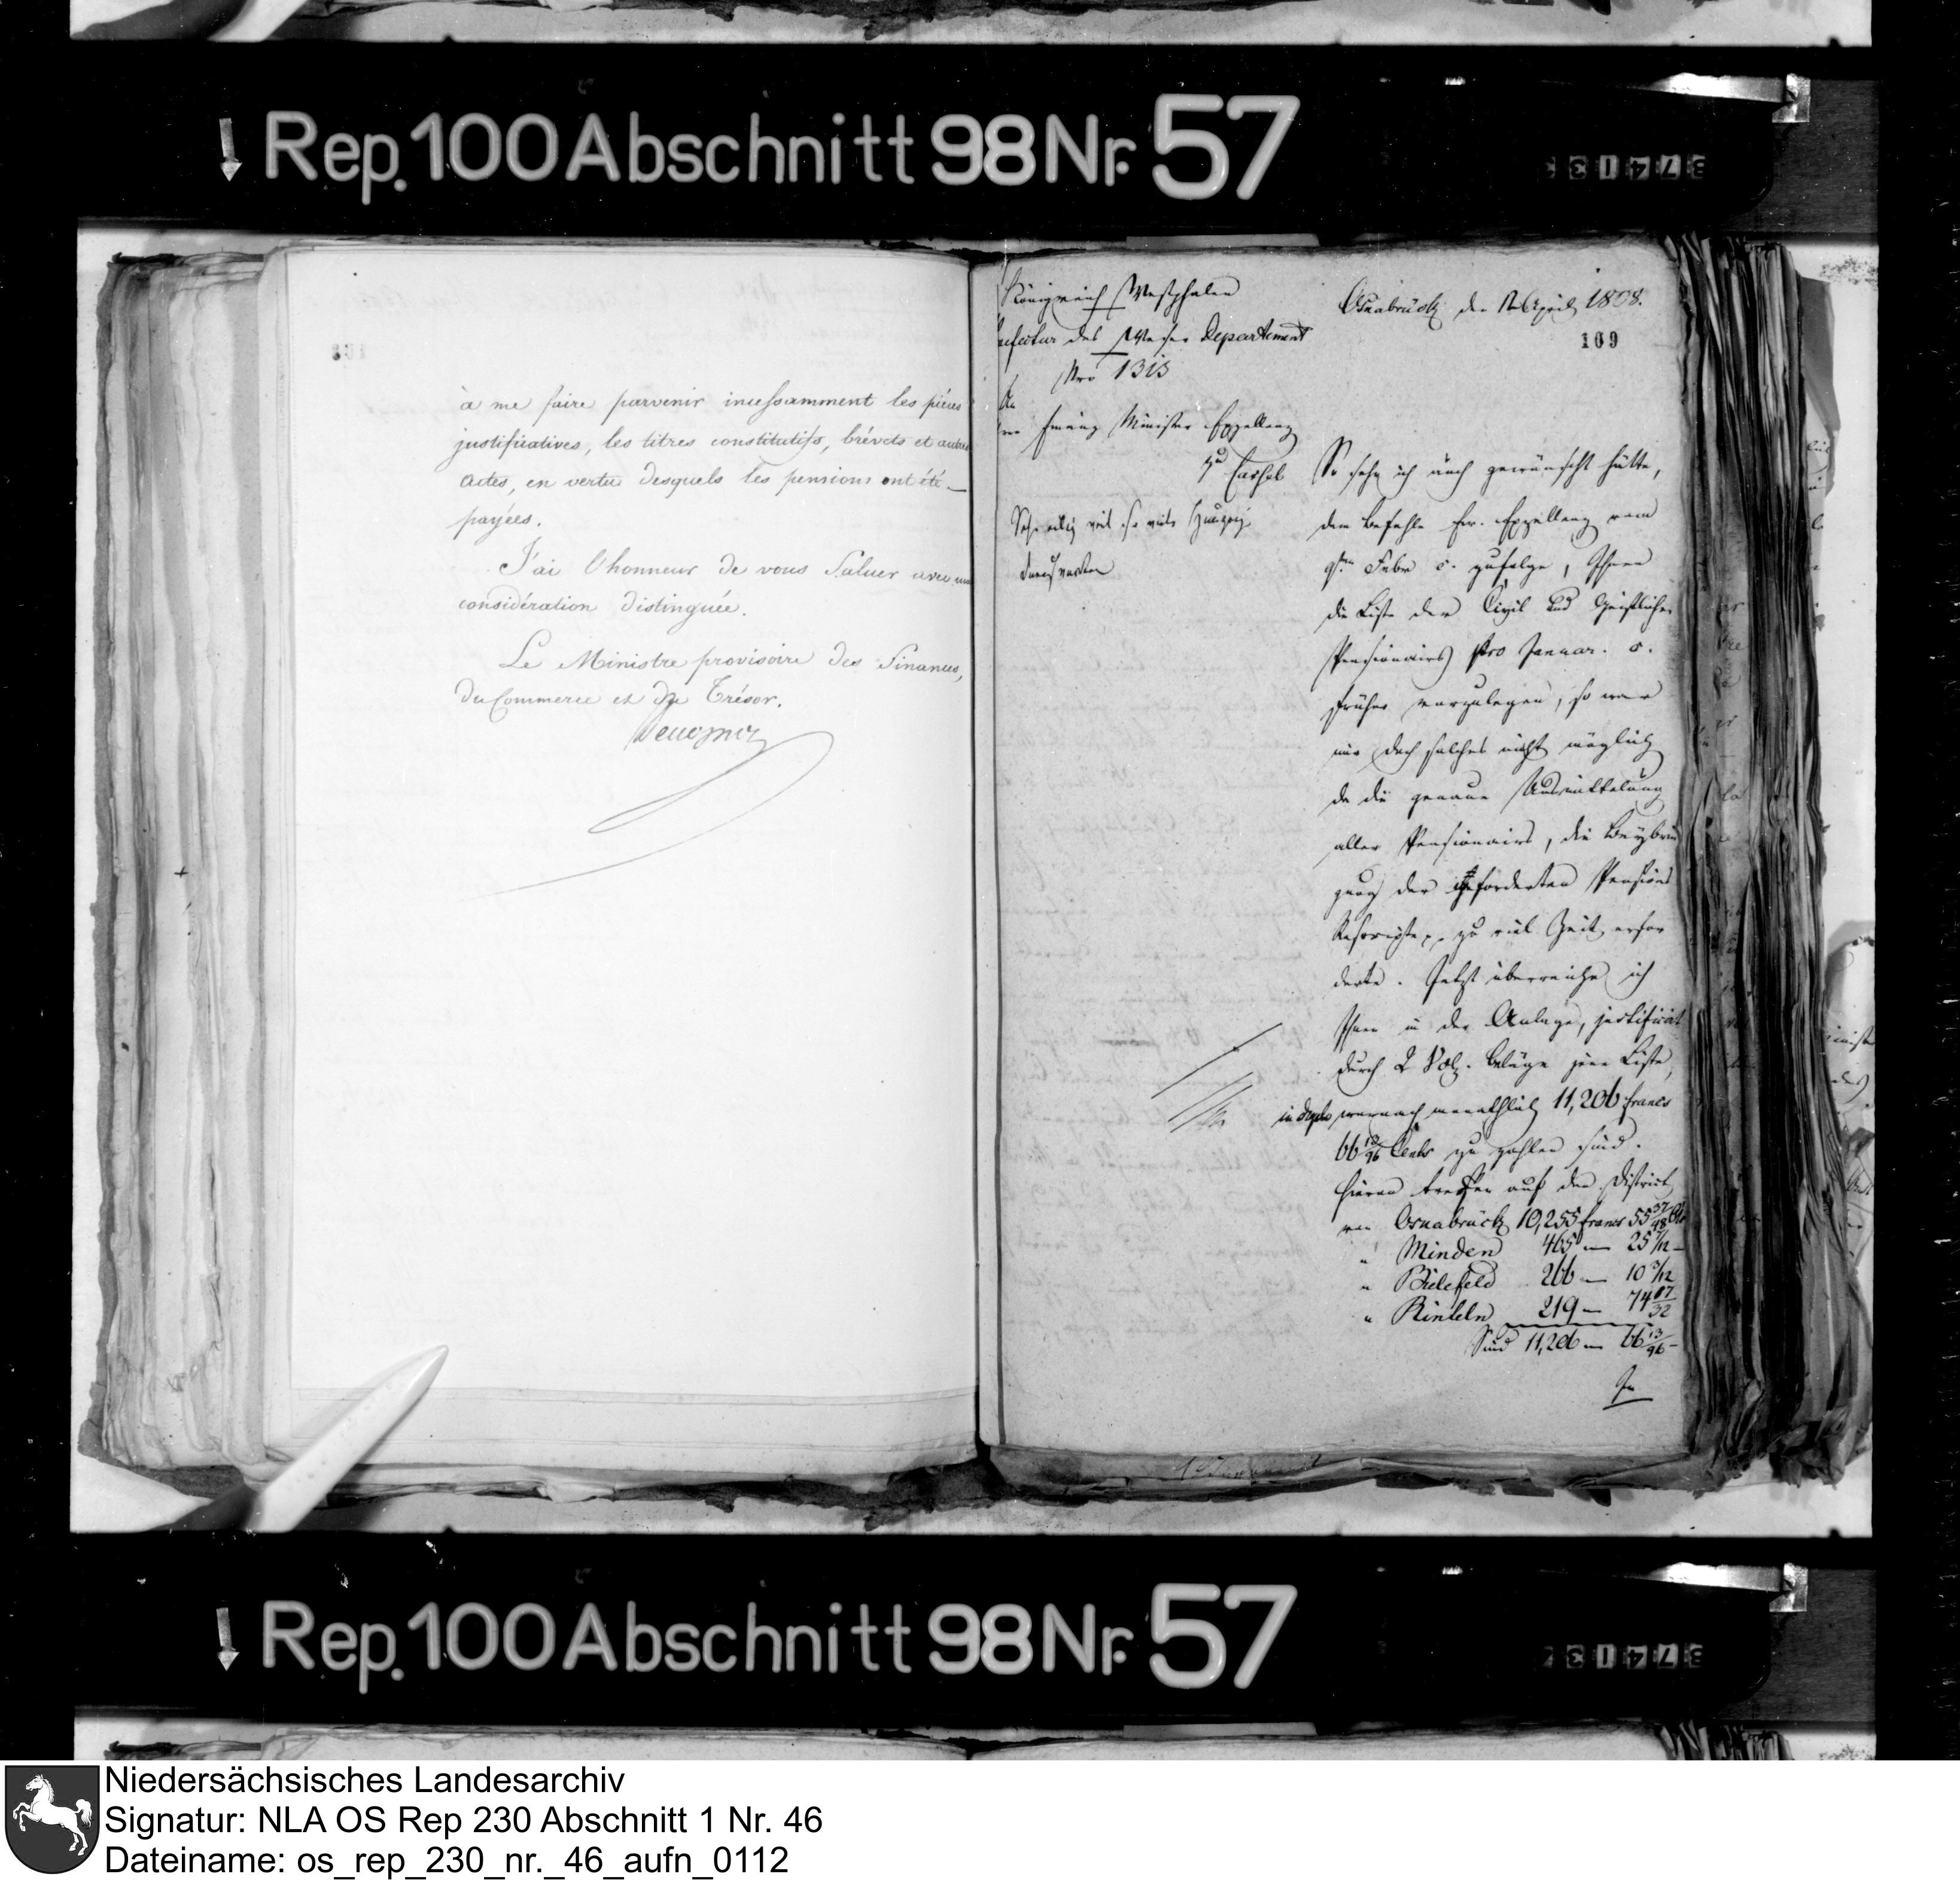 Rep. 100 Abschnitt 98 Nr. 57
à me faire parvenir incessamment les pièces
justificatives, les titres constitutifs, brévets et autres
actes, en vertu desquels les pensions ont été
payées.
J'ai l'honneur de vous Saluer avec une
considération distinguée.
Le Ministre provisoire des Finances,
du Commerce et du Trésor.
Königreich Westphalen
Präfectur des Weser Departement
Nro 1313
An
Finanz Minister Exzellenz
zu Cassel
Osnabrück den April 1808.
109
So sehr ich auch gewünscht hätte,
dem Befehle Ew. Exzellenz vom
9ten Febr c. zufolge, Ihnen
die Liste der Civil und Geistlichen
Pensionairs pro Januar. c.
früher vorzulegen, so war
mir doch solches nicht möglich
da die genaue Ausmittelung
aller Pensionairs, die Beybrin
gung der geforderten Pensions
Rescripte, zu viel Zeit erfor
derte. Jetzt überreiche ich
Ihnen in der Anlage, justificirt
durch 2 Vol. Beläge jene Liste,
in duplo wornach monathlich 11,206 francs
66 13/96 Cents zu zahlen sind.
Hievon treffen auf den District
von Osnabrück 10,255 francs 55 37/48 Cts
" Minden 465 — 25 7/12 —
" Bielefeld 266 — 10 3/12
" Rinteln 219 — 74 17/32
Sind 11,206 — 66 13/96 —
Rep. 100 Abschnitt 98 Nr. 57
Niedersächsisches Landesarchiv
Signatur: NLA OS Rep 230 Abschnitt 1 Nr. 46
Dateiname: os_rep_230_nr._46_aufn_0112